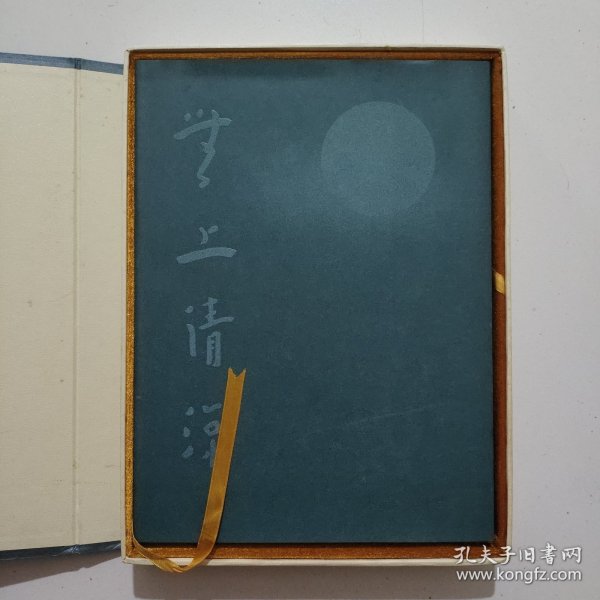 無上清涼
孔夫子旧書网
www.kongfz.com